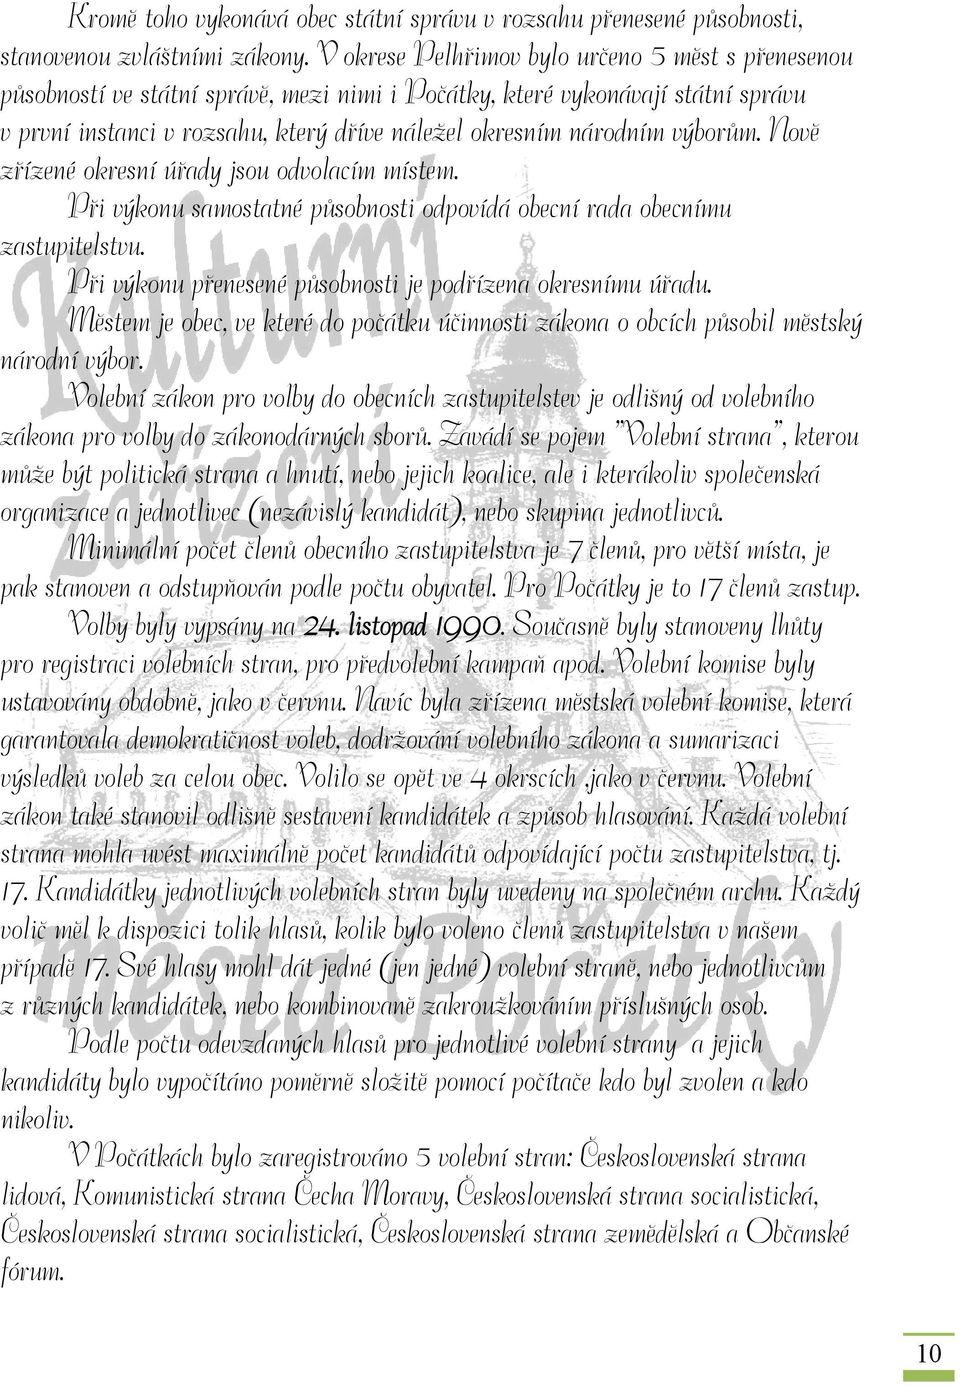 Kromě toho vykonává obec státní správu v rozsahu přenesené působnosti,
stanovenou zvláštními zákony. V okrese Pelhřimov bylo určeno 5 měst s přenesenou
působností ve státní správě, mezi nimi i Počátky, které vykonávají státní správu
v první instanci v rozsahu, který dříve náležel okresním národním výborům. Nově
zřízené okresní úřady jsou odvolacím místem.
Při výkonu samostatné působnosti odpovídá obecní rada obecnímu
zastupitelstvu.
Při výkonu přenesené působnosti je podřízena okresnímu úřadu.
Městem je obec, ve které do počátku účinnosti zákona o obcích působil městský
národní výbor.
Volební zákon pro volby do obecních zastupitelstev je odlišný od volebního
zákona pro volby do zákonodárných sborů. Zavádí se pojem "Volební strana", kterou
může být politická strana a hnutí, nebo jejich koalice, ale i kterákoliv společenská
organizace a jednotlivec (nezávislý kandidát), nebo skupina jednotlivců.
Minimální počet členů obecního zastupitelstva je 7 členů, pro větší místa, je
pak stanoven a odstupňován podle počtu obyvatel. Pro Počátky je to 17 členů zastup.
Volby byly vypsány na 24. listopad 1990. Současně byly stanoveny lhůty
pro registraci volebních stran, pro předvolební kampaň apod. Volební komise byly
ustavovány obdobně, jako v červnu. Navíc byla zřízena městská volební komise, která
garantovala demokratičnost voleb, dodržování volebního zákona a sumarizaci
výsledků voleb za celou obec. Volilo se opět ve 4 okrscích ,jako v červnu. Volební
zákon také stanovil odlišně sestavení kandidátek a způsob hlasování. Každá volební
strana mohla uvést maximálně počet kandidátů odpovídající počtu zastupitelstva, tj.
17. Kandidátky jednotlivých volebních stran byly uvedeny na společném archu. Každý
volič měl k dispozici tolik hlasů, kolik bylo voleno členů zastupitelstva v našem
případě 17. Své hlasy mohl dát jedné (jen jedné) volební straně, nebo jednotlivcům
z různých kandidátek, nebo kombinovaně zakroužkováním příslušných osob.
Podle počtu odevzdaných hlasů pro jednotlivé volební strany a jejich
kandidáty bylo vypočítáno poměrně složitě pomocí počítače kdo byl zvolen a kdo
nikoliv.
V Počátkách bylo zaregistrováno 5 volební stran: Československá strana
lidová, Komunistická strana Čecha Moravy, Československá strana socialistická,
Československá strana socialistická, Československá strana zemědělská a Občanské
fórum.
Kulturní
zařízení
města Počátky
10